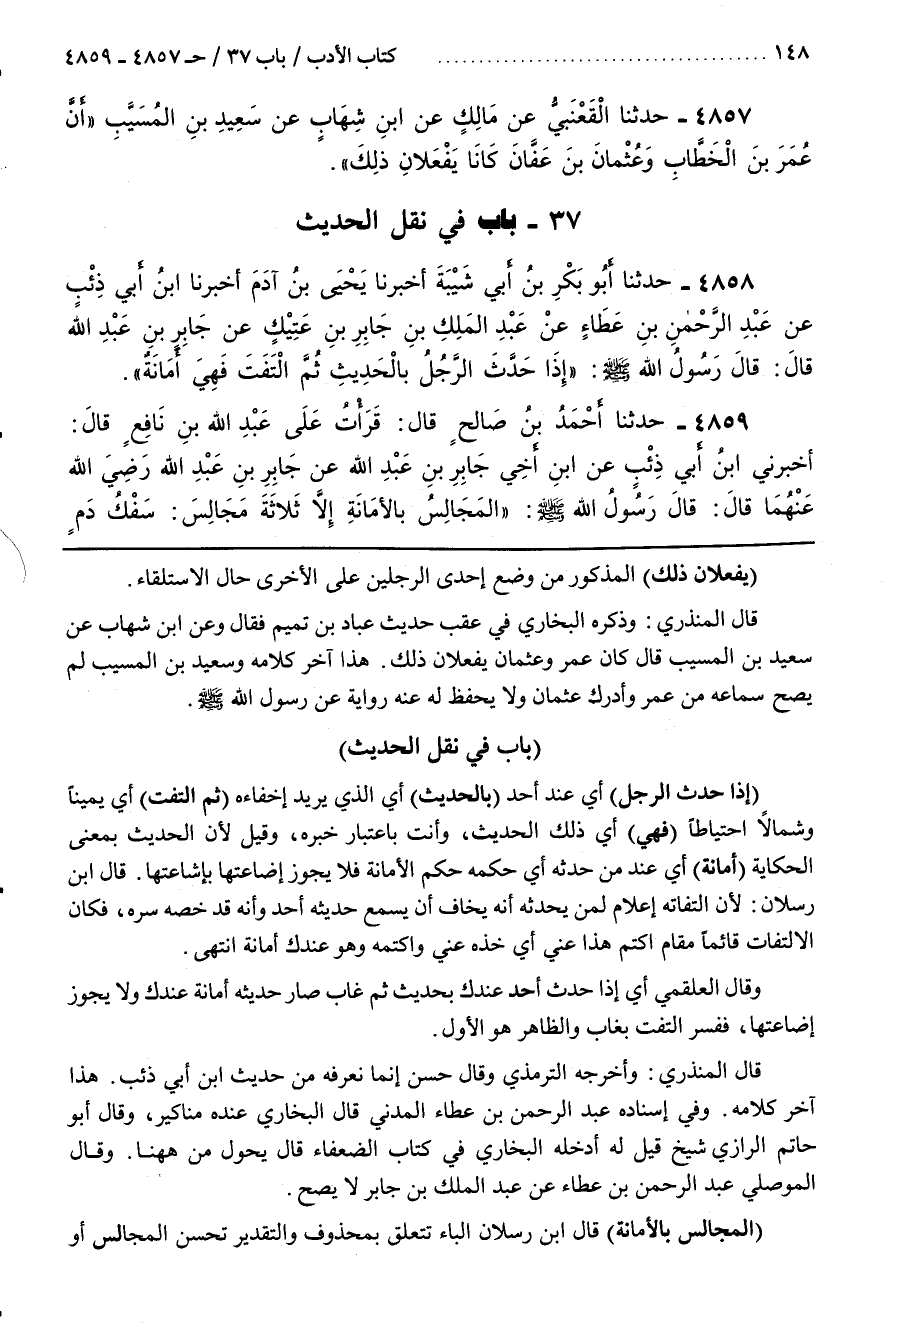 ١٤٨ ........................................ كتاب الأدب / باب ٣٧ / حـ ٤٨٥٧ ـ ٤٨٥٩
٤٨٥٧ ـ حدثنا الْقَعْنَبيُّ عن مَالِكٍ عن ابنِ شِهَابٍ عن سَعِيدِ بنِ المُسَيَّبِ «أَنَّ
عُمَرَ بنَ الْخَطَّابِ وَعُثْمانَ بنَ عَفَّانَ كَانَا يَفْعَلانِ ذلِكَ».
٣٧ ـ باب في نقل الحديث
٤٨٥٨ ـ حدثنا أَبُو بَكْرِ بنُ أَبي شَيْبَةَ أخبرنا يَحْيَى بنُ آدَمَ أخبرنا ابنُ أَبي ذِئْبٍ
عن عَبْدِ الرَّحْمٰنِ بنِ عَطَاءٍ عنْ عَبْدِ المَلِكِ بنِ جَابِرِ بنِ عَتِيْكٍ عن جَابِرِ بنِ عَبْدِ الله
قالَ: قالَ رَسُولُ الله ﷺ: «إِذَا حَدَّثَ الرَّجُلُ بالْحَدِيثِ ثُمَّ الْتَفَتَ فَهِيَ أَمَانَةٌ».
٤٨٥٩ ـ حدثنا أَحْمَدُ بنُ صَالحٍ قال: قَرَأْتُ عَلَى عَبْدِ الله بنِ نَافِعٍ قالَ:
أخبرني ابنُ أَبي ذِئْبٍ عن ابنِ أَخِي جَابِرِ بنِ عَبْدِ الله عن جَابِرِ بنِ عَبْدِ الله رَضِيَ الله
عَنْهُمَا قالَ: قالَ رَسُولُ الله ﷺ: «المَجَالِسُ بالأمَانَةِ إِلَّا ثَلاثَةَ مَجَالِسَ: سَفْكُ دَمٍ
(يفعلان ذلك) المذكور من وضع إحدى الرجلين على الأخرى حال الاستلقاء.
قال المنذري: وذكره البخاري في عقب حديث عباد بن تميم فقال وعن ابن شهاب عن
سعيد بن المسيب قال كان عمر وعثمان يفعلان ذلك. هذا آخر كلامه وسعيد بن المسيب لم
يصح سماعه من عمر وأدرك عثمان ولا يحفظ له عنه رواية عن رسول الله ﷺ.
(باب في نقل الحديث)
(إذا حدث الرجل) أي عند أحد (بالحديث) أي الذي يريد إخفاءه (ثم التفت) أي يميناً
وشمالاً احتياطاً (فهي) أي ذلك الحديث، وأنت باعتبار خبره، وقيل لأن الحديث بمعنى
الحكاية (أمانة) أي عند من حدثه أي حكمه حكم الأمانة فلا يجوز إضاعتها بإشاعتها. قال ابن
رسلان: لأن التفاته إعلام لمن يحدثه أنه يخاف أن يسمع حديثه أحد وأنه قد خصه سره، فكان
الالتفات قائماً مقام اكتم هذا عني أي خذه عني واكتمه وهو عندك أمانة انتهى.
وقال العلقمي أي إذا حدث أحد عندك بحديث ثم غاب صار حديثه أمانة عندك ولا يجوز
إضاعتها، ففسر التفت بغاب والظاهر هو الأول.
قال المنذري: وأخرجه الترمذي وقال حسن إنما نعرفه من حديث ابن أبي ذئب. هذا
آخر كلامه. وفي إسناده عبد الرحمن بن عطاء المدني قال البخاري عنده مناكير، وقال أبو
حاتم الرازي شيخ قيل له أدخله البخاري في كتاب الضعفاء قال يحول من ههنا. وقال
الموصلي عبد الرحمن بن عطاء عن عبد الملك بن جابر لا يصح.
(المجالس بالأمانة) قال ابن رسلان الباء تتعلق بمحذوف والتقدير تحسن المجالس أو